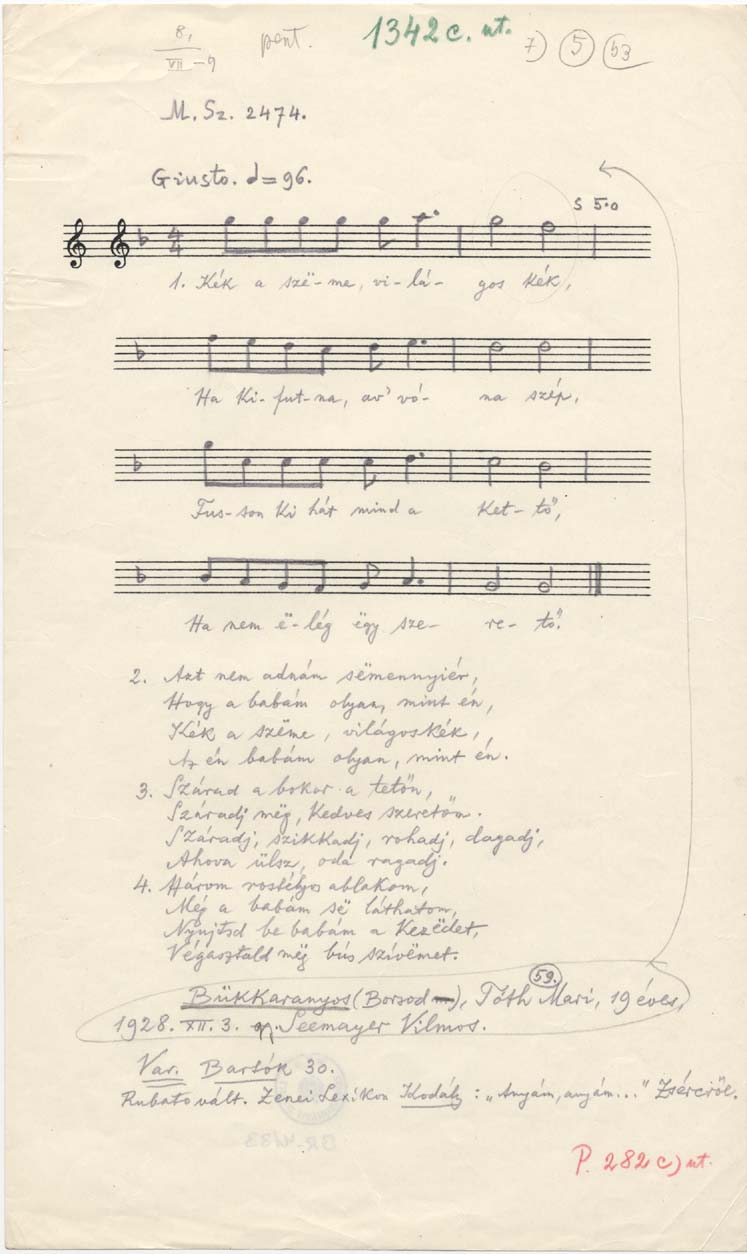 8,
VII -9
pent.
1342 c. ut.
7) 5 53
M. Sz. 2474.
Giusto. d = 96.
S 5.0
4
4
1. Kék a szë-me, vi-lá- gos kék,
Ha ki-fut-na, av' vó- na szép,
Fus-son ki hát mind a ket-tő,
Ha nem ë-lég ëgy sze- re-tő.
2. Azt nem adnám sëmennyiér,
Hogy a babám olyan, mint én,
Kék a szëme, világoskék,
Az én babám olyan, mint én.
3. Szárad a bokor a tetőn,
Száradj mëg, kedves szeretőm.
Száradj, szikkadj, rohadj, dagadj,
Ahova ülsz, oda ragadj.
4. Három rostélyos ablakom,
Még a babám së láthatom,
Nyujtsd be babám a kezëdet,
Végasztald mëg bús szívëmet.
59.
Bükkaranyos (Borsod), Tóth Mari, 19 éves,
1928. XII. 3. Seemayer Vilmos.
Var. Bartók 30.
Rubato vált. Zenei Lexikon Kodály: „Anyám, anyám..." Zsércről.
P. 282 c) ut.